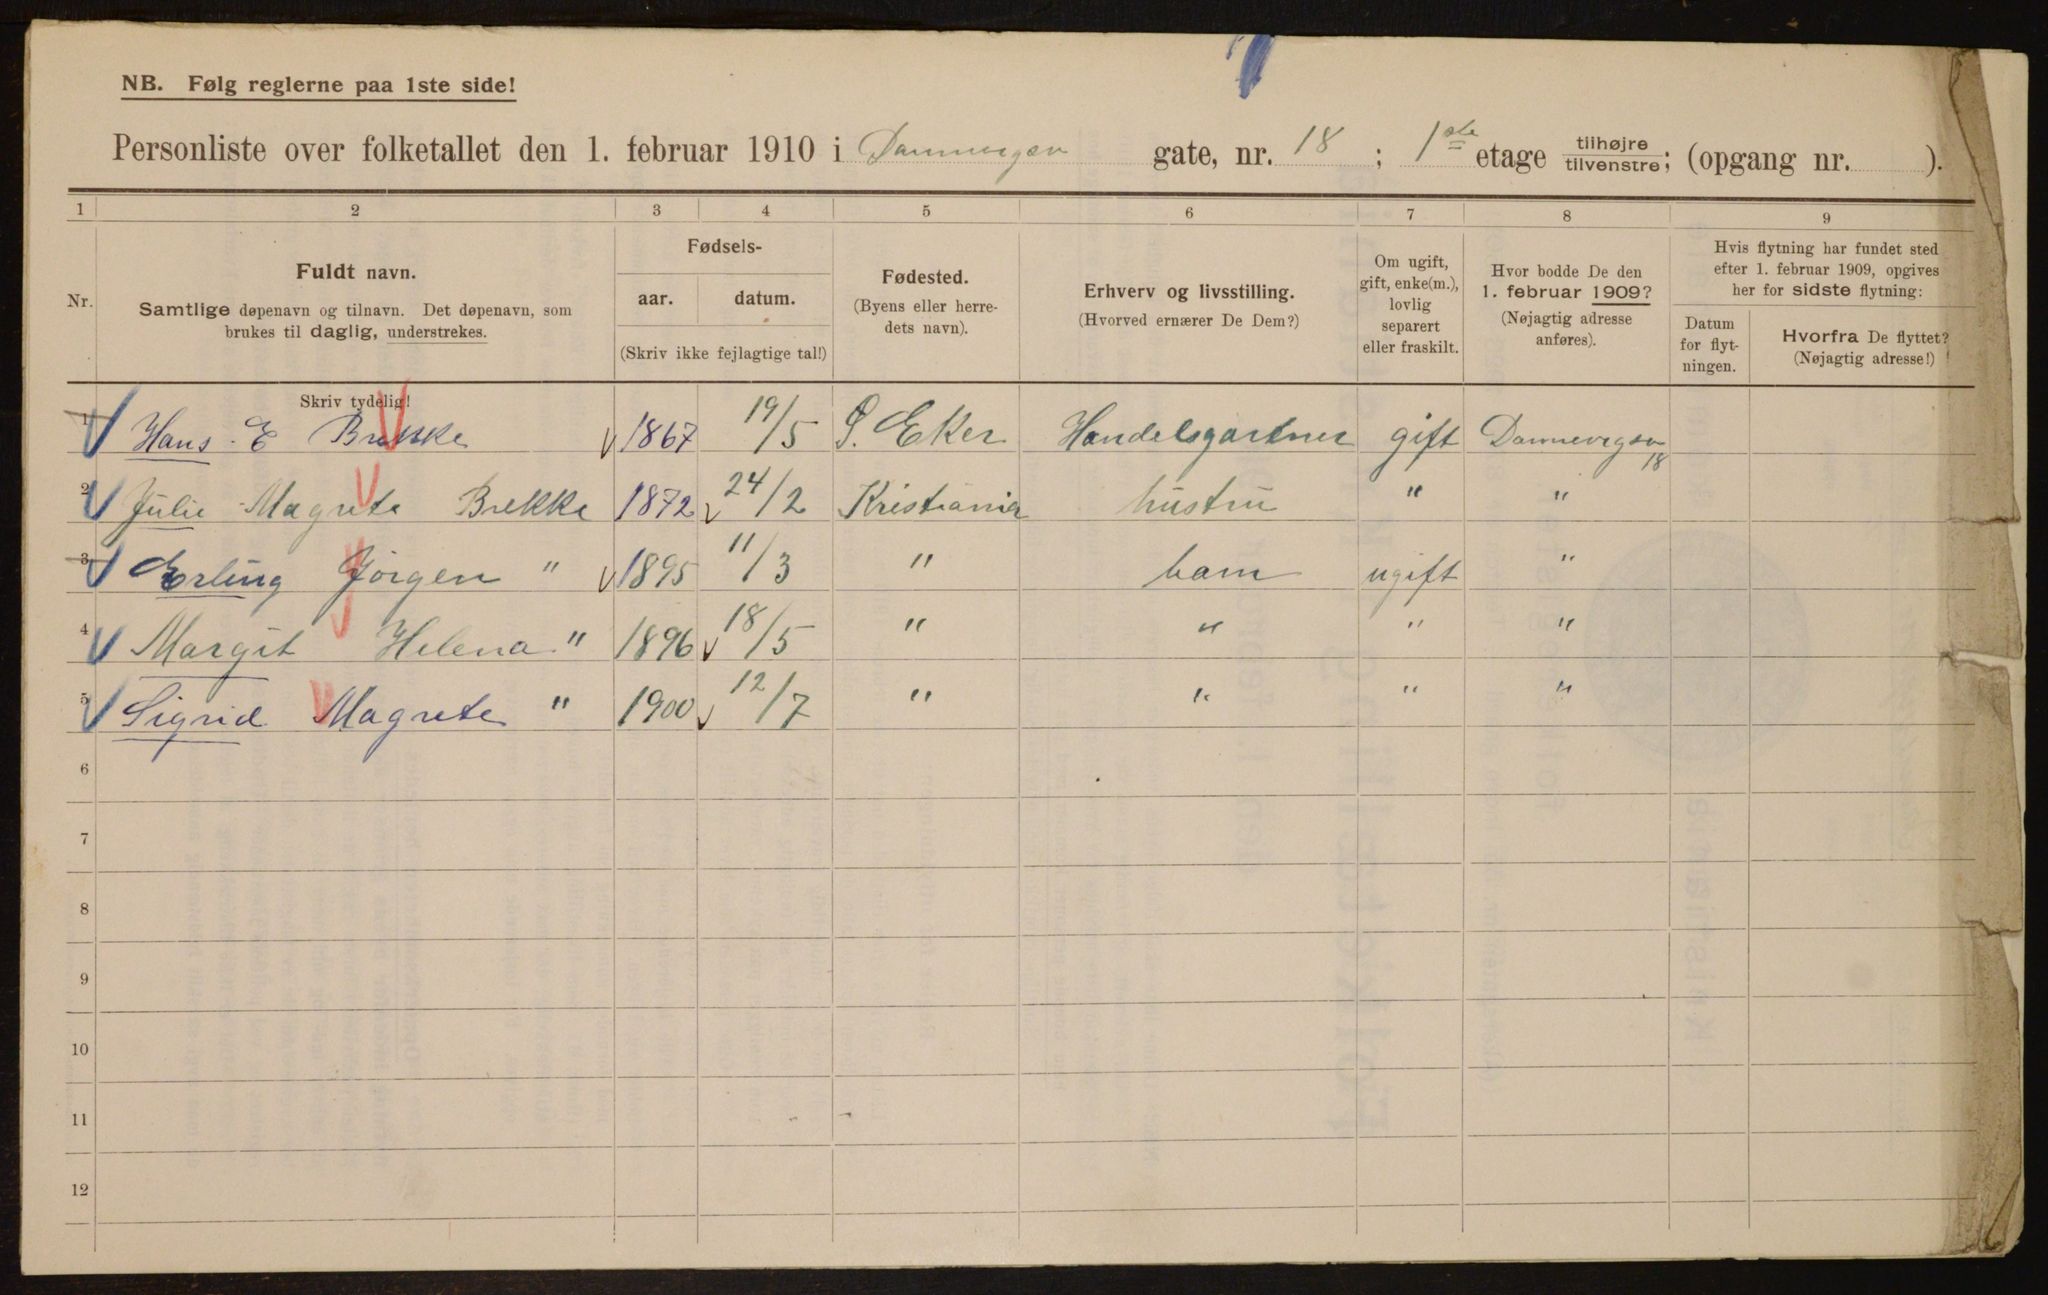 NB. Følg reglerne paa 1ste side!
Personliste over folketallet den 1. februar 1910 i Dannevegsn gate, nr. 18 ; 1ste etage tilhøjre tilvenstre; (opgang nr. ).
1 2 3 4 5 6 7 8 9
Nr.
Fuldt navn.
Samtlige døpenavn og tilnavn. Det døpenavn, som
brukes til daglig, understrekes.
Fødsels-
aar. datum.
(Skriv ikke fejlagtige tal!)
Fødested.
(Byens eller herre-
dets navn).
Erhverv og livsstilling.
(Hvorved ernærer De Dem?)
Om ugift,
gift, enke(m.),
lovlig
separert
eller fraskilt.
Hvor bodde De den
1. februar 1909?
(Nøjagtig adresse
anføres).
Hvis flytning har fundet sted
efter 1. februar 1909, opgives
her for sidste flytning:
Datum
for flyt-
ningen.
Hvorfra De flyttet?
(Nøjagtig adresse!)
Skriv tydelig!
1 Hans E Brekke 1867 19/5 Ø. Eker Handelsgartner gift Dannevegsn 18
2 Julie Magrete Brekke 1872 24/2 Kristiania hustru " "
3 Erling Jörgen " 1895 11/3 " barn ugift "
4 Margit Helena " 1896 18/5 " " " "
5 Sigrid Magrete " 1900 12/7 " " " "
6
7
8
9
10
11
12